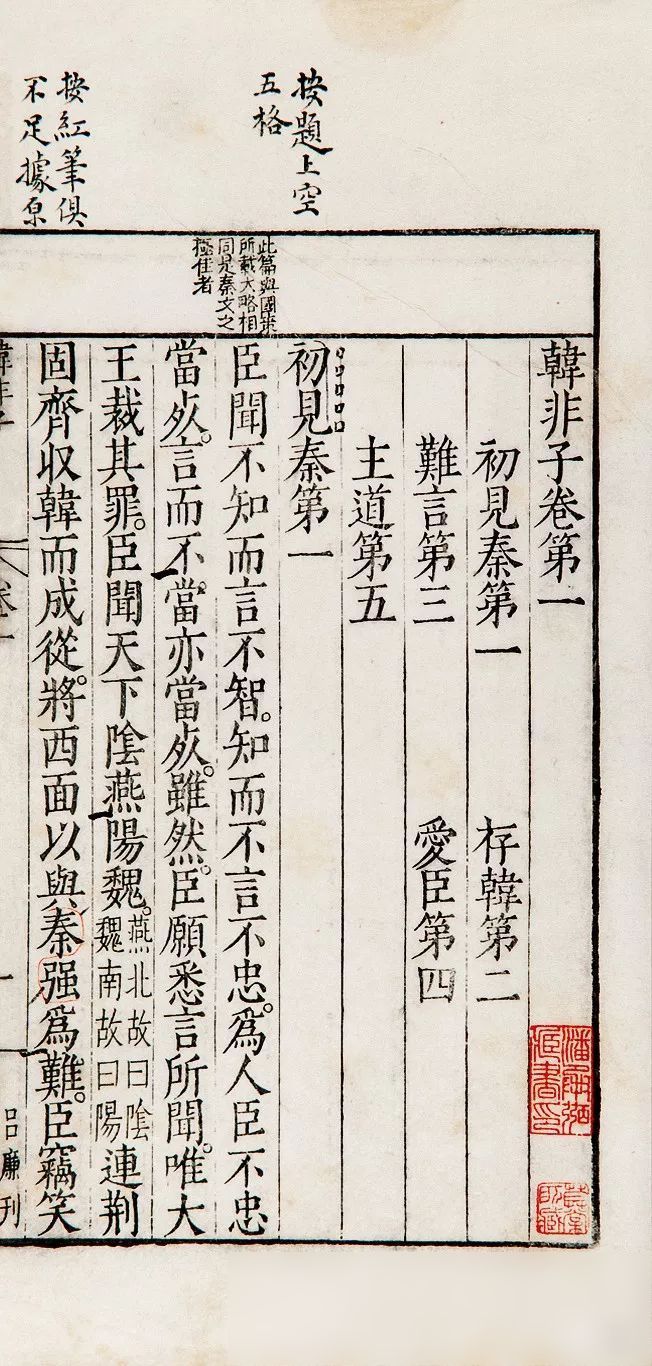 按題上空
五格
按紅筆俱
不足據原
此篇與國策
所載大略相
同是秦文之
極佳者
韓非子卷第一
初見秦第一 存韓第二
難言第三 愛臣第四
主道第五
初見秦第一
臣聞不知而言不智。知而不言不忠。爲人臣不忠
當死。言而不當亦當死。雖然。臣願悉言所聞。唯大
王裁其罪。臣聞天下陰燕陽魏。燕北故曰陰魏南故曰陽連荆
固齊收韓而成從。將西面以與秦强爲難。臣竊笑
韓非子
卷一
一